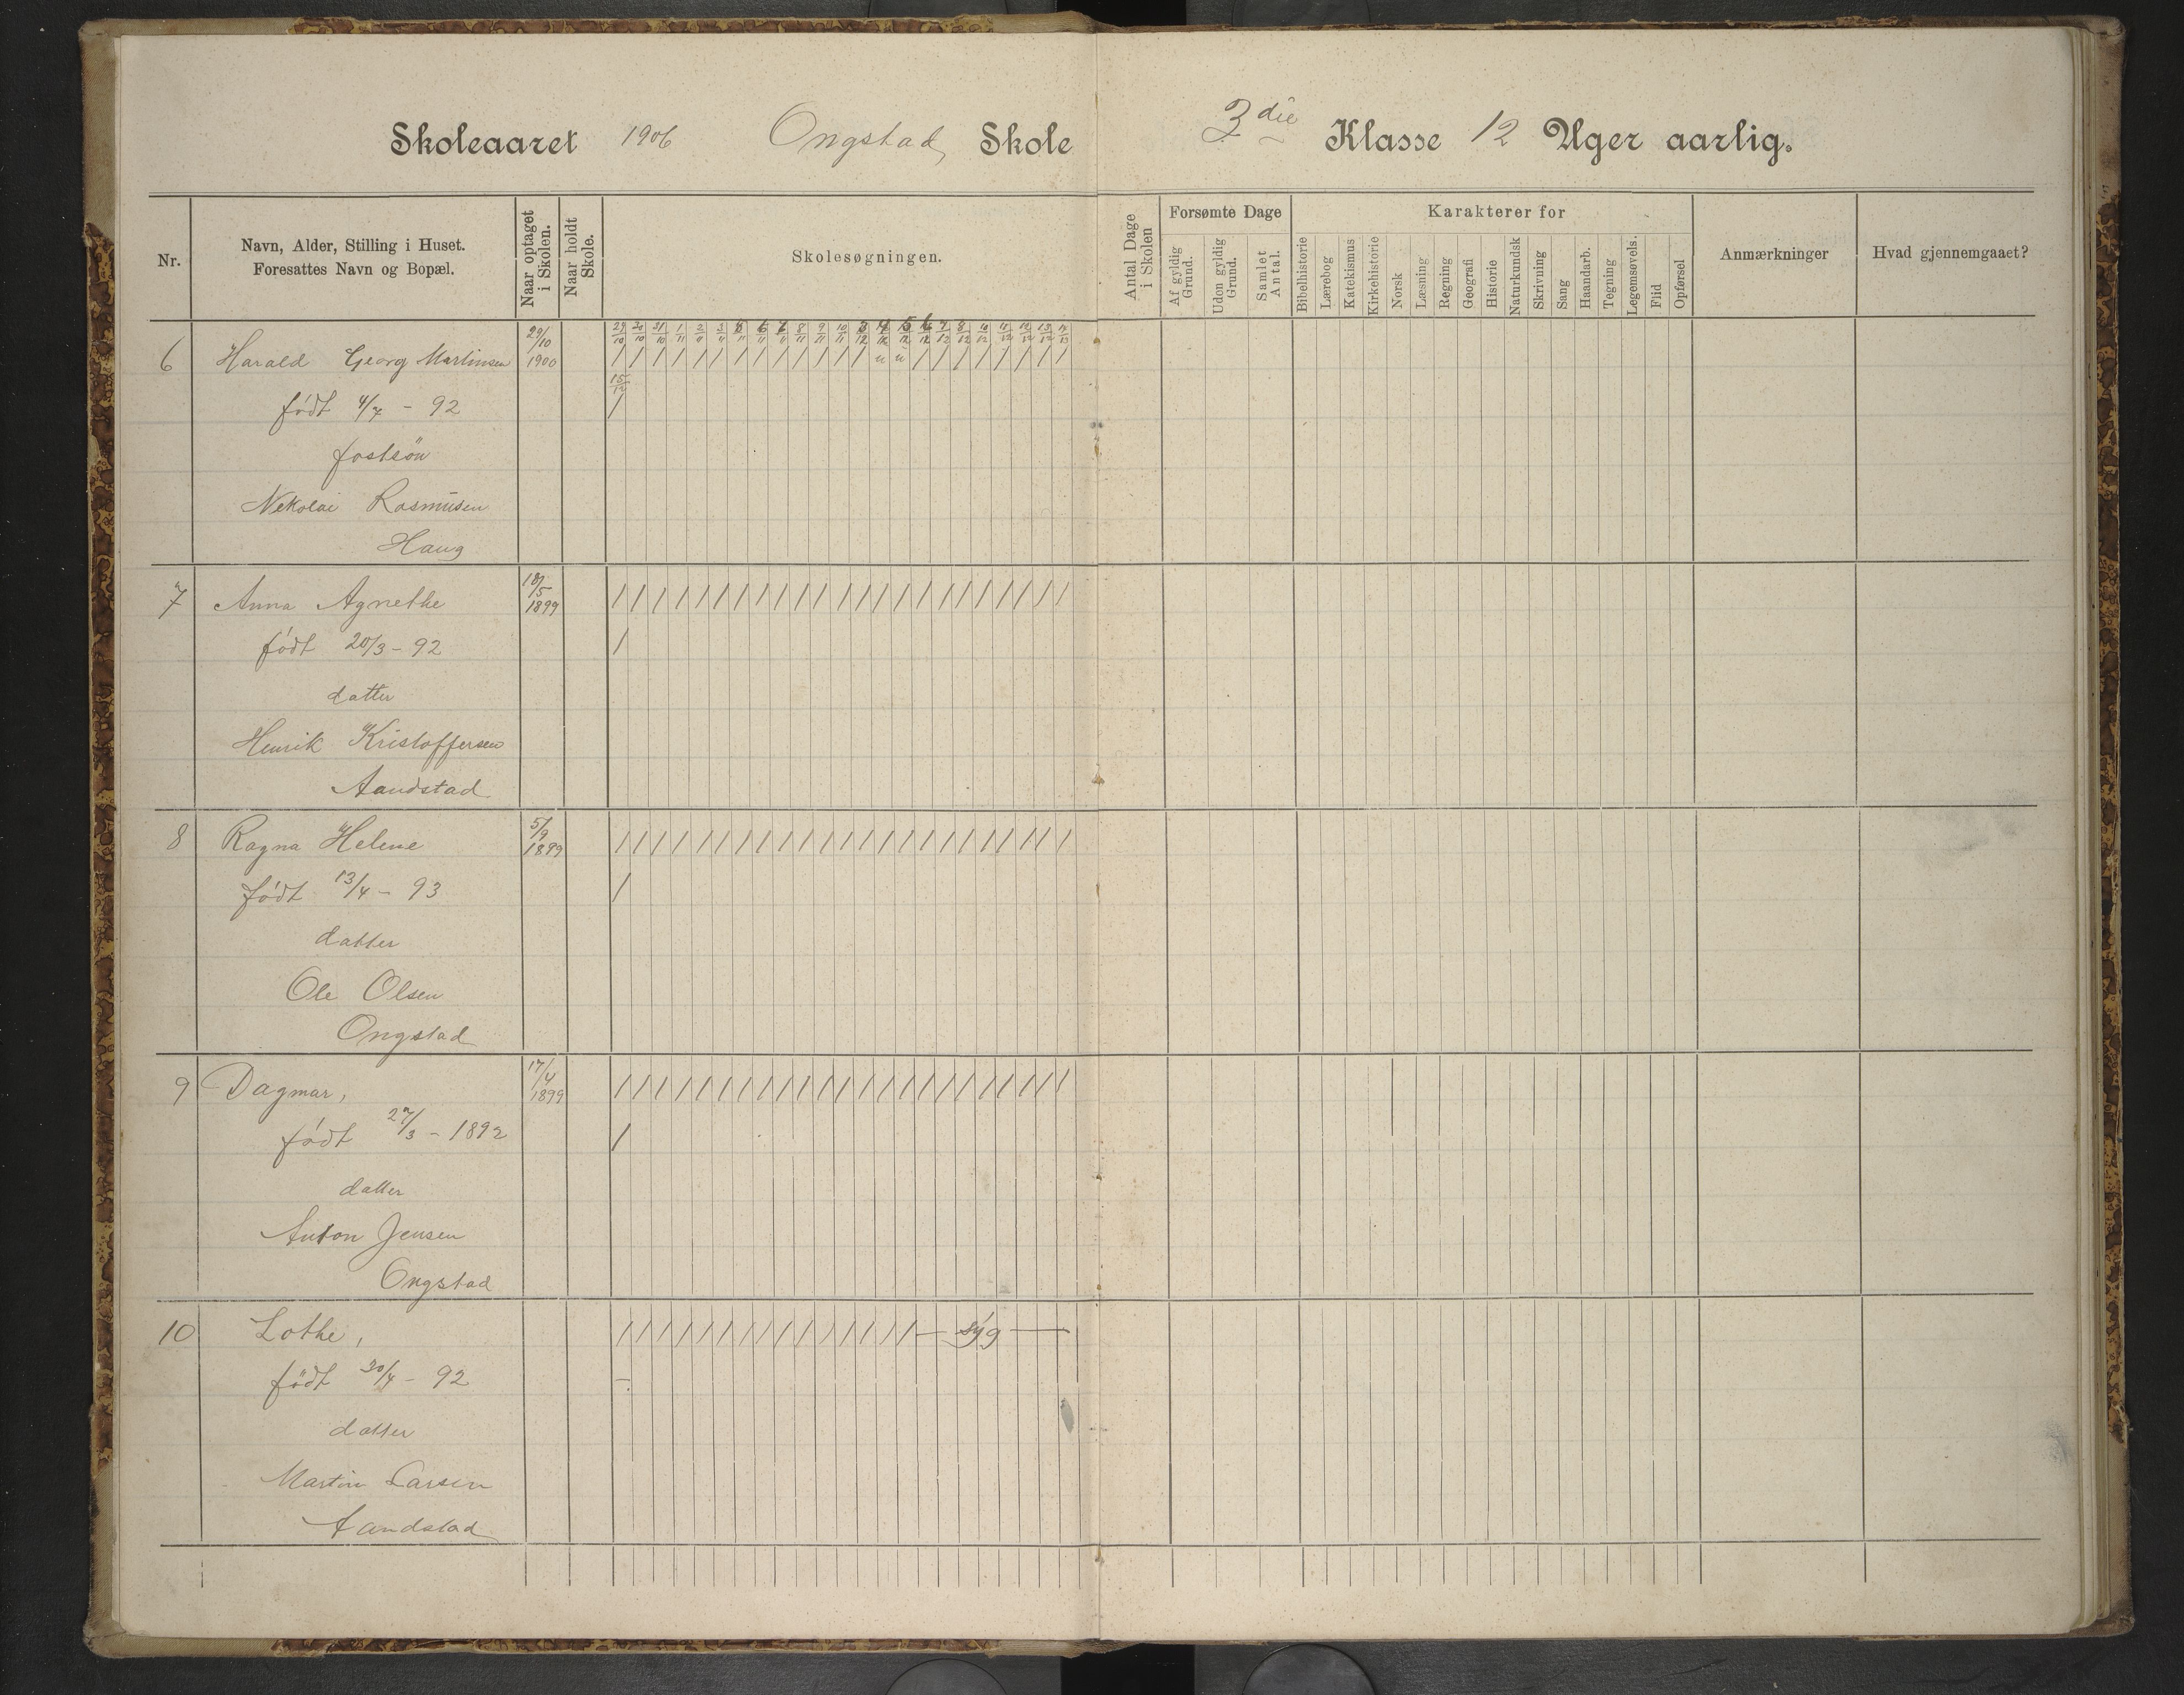 Skoleaaret 1906 Ongstad Skole 3die Klasse 12 Uger aarlig.
Nr.
Navn, Alder, Stilling i Huset.
Foresattes Navn og Bopæl.
Naar optaget
i Skolen.
Naar holdt
Skole.
Skolesøgningen.
Antal Dage
i Skolen
Forsømte Dage
Af gyldig
Grund.
Uden gyldig
Grund.
Samlet
Antal.
Karakterer for
Bibelhistorie
Lærebog
Katekismus
Kirkehistorie
Norsk
Læsning
Regning
Geografi
Historie
Naturkundsk
Skrivning
Sang
Haandarb.
Tegning
Legemsøvels.
Flid
Opførsel
Anmærkninger
Hvad gjennemgaaet?
29/10 30/10 31/10 1/11 2/11 3/11 5/11 6/11 7/11 8/11 9/11 10/11 3/12 4/12 5/12 6/12 7/12 8/12 10/12 11/12 12/12 13/12 14/12
6 Harald Georg Martinsen 29/10 1900 / / / / / / / / / / / / / u u / / / / / / / /
15/12
født 4/7 - 92 /
fostsön
Nekolai Rasmusen
Haug
7 Anna Agnethe 18/5 1899 / / / / / / / / / / / / / / / / / / / / / / /
født 20/3 - 92 /
datter
Henrik Kristoffersen
Aandstad
8 Ragna Helene 5/9 1899 / / / / / / / / / / / / / / / / / / / / / / /
født 13/4 - 93 /
datter
Ole Olsen
Ongstad
9 Dagmar, 17/4 1899 / / / / / / / / / / / / / / / / / / / / / / /
født 27/3 - 1892 /
datter
Anton Jensen
Ongstad
10 Lothe, / / / / / / / / / / / / / / / — syg —
født 30/4 - 92 –
datter
Martin Larsen
Aandstad